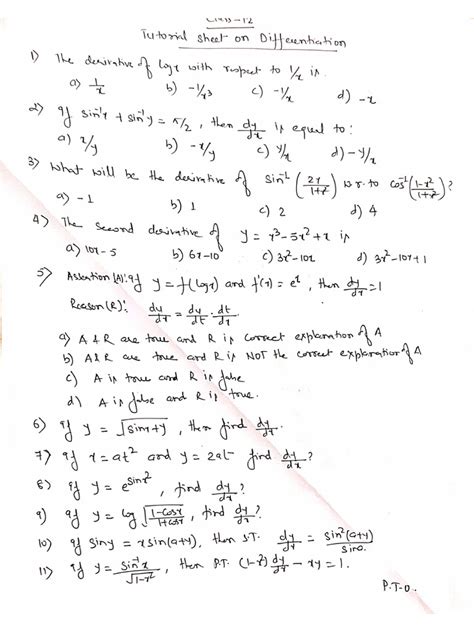 Class-12
Tutorial sheet on Differentiation
1) The derivative of log x with respect to 1/x is
a) 1/x b) -1/x³ c) -1/x d) -x
2) If sin⁻¹x + sin⁻¹y = π/2, then dy/dx is equal to:
a) x/y b) -x/y c) y/x d) -y/x
3) What will be the derivative of sin⁻¹(2x/1+x²) w.r. to cos⁻¹(1-x²/1+x²)?
a) -1 b) 1 c) 2 d) 4
4) The second derivative of y = x³-5x²+x is
a) 10x-5 b) 6x-10 c) 3x²-10x d) 3x²-10x+1
5) Assertion (A): If y = f(log x) and f'(x) = eˣ, then dy/dx = 1
Reason (R): dy/dx = dy/dt · dt/dx
a) A & R are true and R is correct explanation of A
b) A & R are true and R is NOT the correct explanation of A
c) A is true and R is false
d) A is false and R is true.
6) If y = √sinx+y, then find dy/dx.
7) If x = at² and y = 2at find dy/dx?
8) If y = e^sinx², find dy/dx?
9) If y = log √1-cosx/1+cosx, find dy/dx?
10) If siny = x sin(a+y), then S.T. dy/dx = sin²(a+y)/sina.
11) If y = sin⁻¹x/√1-x², then P.T. (1-x²) dy/dx - xy = 1.
P.T.O.